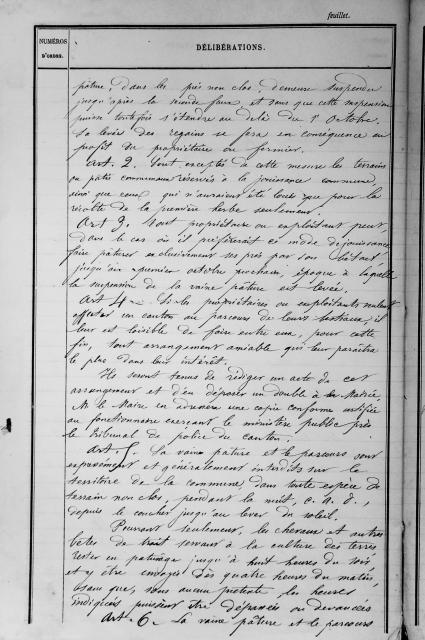 feuillet.
NUMÉROS
D'ORDRE.
DÉLIBÉRATIONS.
pâture, dans les prés non clos, demeure suspendue
jusqu'après la seconde faux, et sans que cette suspension
puisse toutefois s'étendre au delà du 1er Octobre.
La levée des regains se fera en conséquence au
profit du propriétaire ou fermier.
Art. 2. Sont exceptés de cette mesure les terrains
ou pâtis communaux réservés à la jouissance commune,
ainsi que ceux qui n'auraient été loués que pour la
récolte de la première herbe seulement.
Art 3. Tout propriétaire ou exploitant peut,
dans le cas où il préférerait ce mode de jouissance,
faire pâturer exclusivement ses prés par son bétail
jusqu'au premier octobre prochain, époque à laquelle
la suspension de la vaine pâture est levée.
Art 4 - Si les propriétaires ou exploitants veulent
affecter un canton au parcours de leurs bestiaux, il
leur est loisible de faire entre eux, pour cette
fin, tout arrangement amiable qui leur paraîtra
le plus dans leur intérêt.
Ils seront tenus de rédiger un acte de cet
arrangement et d'en déposer un double à la Mairie.
M. le Maire en une copie conforme certifiée
au fonctionnaire exerçant le ministère public près
le tribunal de police du canton.
Art. 5. La vaine pâture et le parcours sont
expressément et généralement interdits sur le
territoire de la commune dans toute espèce de
terrain non clos, pendant la nuit, c. a. d.
depuis le coucher jusqu'au lever du soleil.
Pourront seulement, les chevaux et autres
bêtes de trait servant à la culture des terres
rester en pâturage jusqu'à huit heures du soir,
et y être envoyés dès quatre heures du matin,
sans que, sous aucun prétexte, les heures
indiquées puissent être dépassées ou devancées
Art. 6 - La vaine pâture et le parcours